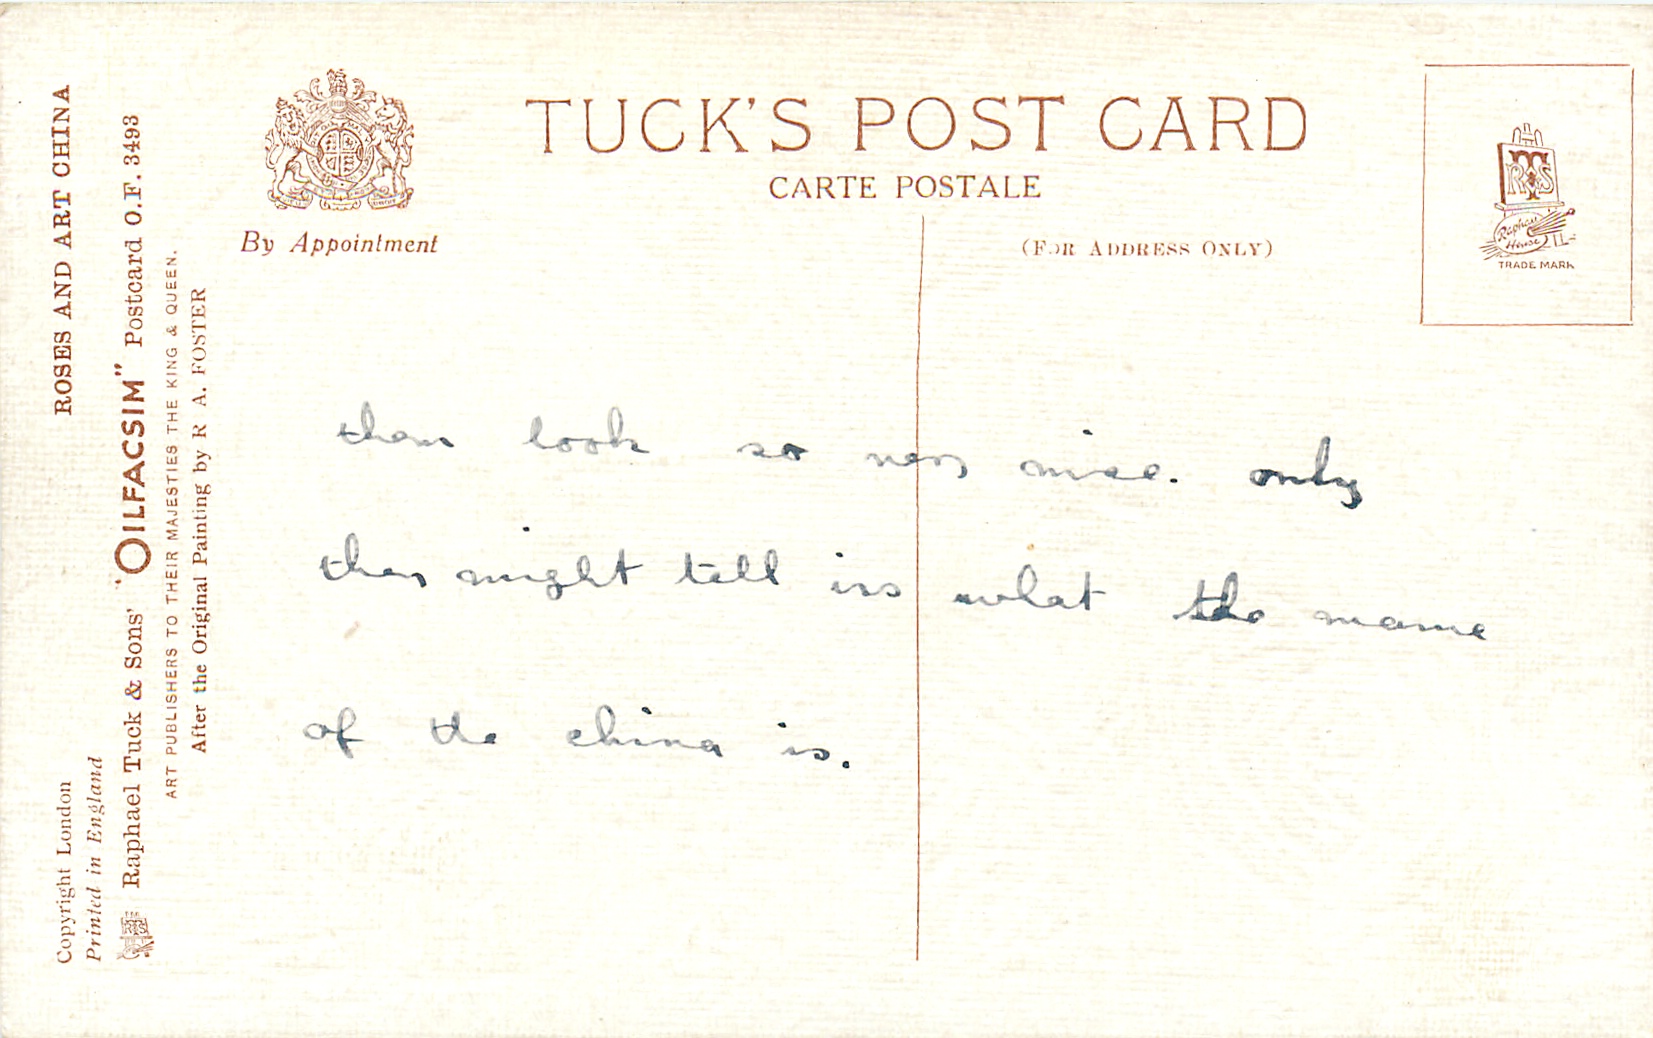 TUCK'S POST CARD
CARTE POSTALE
By Appointment
(FOR ADDRESS ONLY)
TRS
Raphael House
TRADE MARK
ROSES AND ART CHINA
Copyright London
Printed in England
Raphael Tuck & Sons' "OILFACSIM" Postcard O.F. 3493
ART PUBLISHERS TO THEIR MAJESTIES THE KING & QUEEN.
After the Original Painting by R. A. FOSTER
they look so very nice. only
they might tell us what the name
of the china is.